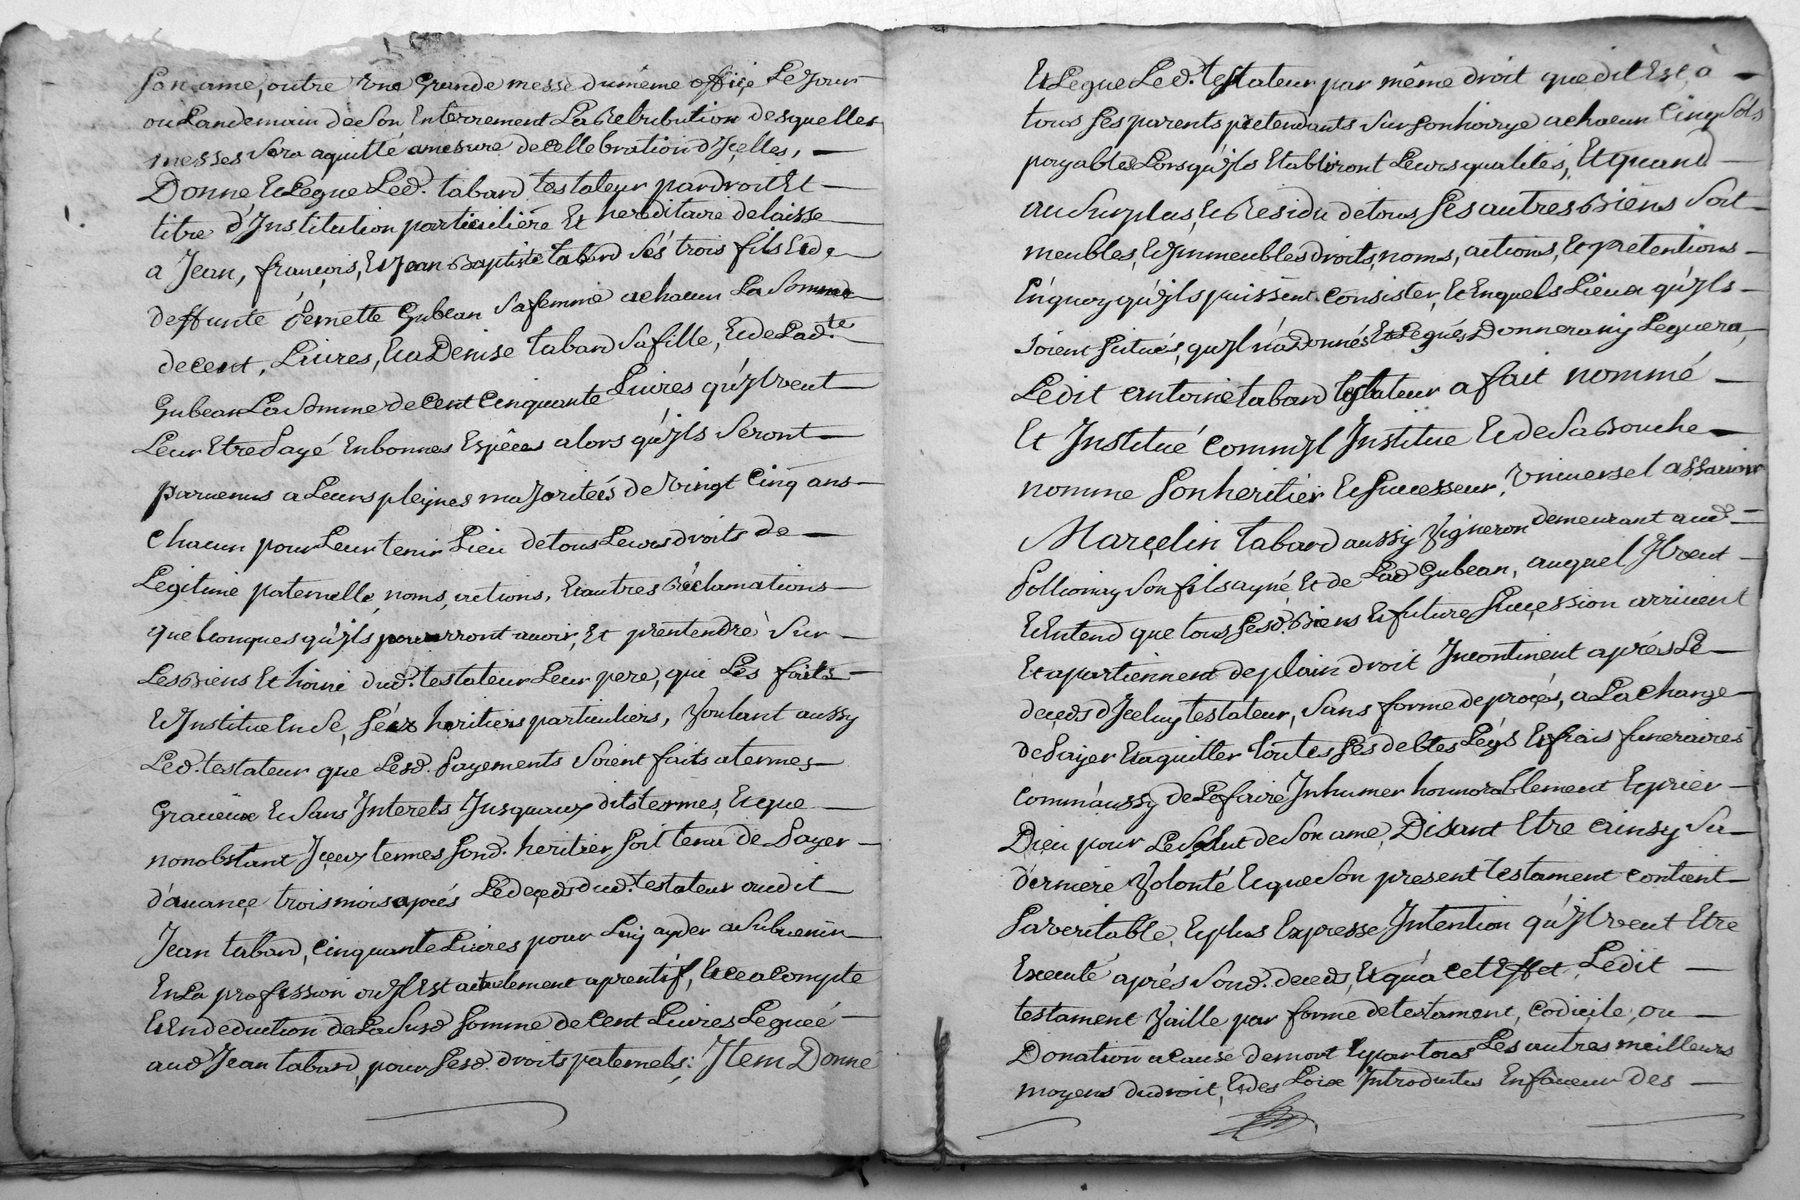 son ame, outre une Grande messe dumême office Le Jour
ou Landemain de Son Enterrement La Retribution desquelles
messes sera aquitté amesure de cellebration d'Jcelles, —
Donne, Et Legue Led. tabard testateur par droit Et —
titre d'Institution particuiliére Et hereditaire delaisse
a Jean, françois, Et Jean Baptiste tabard Ses trois fils Et de
deffunte Gubean Sa femme a chacun La Somme
de cent, Livres, Et a Denise tabard Sa fille, Et de Lad.te
Gubean La Somme de Cent Cinquante Livres qu'Jl veut —
Leur Etre Payé En bonnes Espéces alors qu'Jls Seront —
parvenus a Leurs pleynes majoritées de vingt Cinq ans —
Chacun pour Leur tenir Lieu de tous Leurs droits de —
Legitime paternelle, noms, actions, Et autres Réclamations —
quelconques qu'Jls pourront avoir, Et prentendre Sur —
Les Biens Et hoirie dud. testateur Leur pere, qui Les faits —
Et Institue En Se, Ses heritiers particuliers, Voulant aussy
Led. testateur que Lesd. Payements Soient faits a termes —
Gracieux Et Sans Interets Jusquaux dits termes, Et que —
nonobstant Jceux termes Sond. heritier Soit tenu de Payer —
d'avance trois mois aprés Le deceds dud. testateur audit
Jean tabard, cinquante Livres pour Luy ayder a Subvenir —
En La profession ou Jl Est actuelement aprentif, Et ce a Compte
Et En deduction de La Susd. Somme de Cent Livres Leguée —
aud. Jean tabard, pour Sesd. droits paternels; Jtem Donne
Et Legue Led. testateur par même droit que dit Est, à —
tous Ses parents pretendants Sur Son hoirye a chacun Cinq Sols
payables Lorsqu'Jls Etabliront Leurs qualités, Et quand —
au Surplus, Et Residu de tous Ses autres Biens Soit —
meubles, Et Jmmeubles droits, noms, actions, Et pretentions —
En quoy qu'Jls puissent Consister, Et En quels Lieux qu'Jls —
Soient Scitués, qu'Jl n'a Donnés Et Legués Donnera ny Leguera,
Ledit antoine tabard testateur a fait nommé —
Et Institué comm'Jl Institue Et de Sa Bouche —
nomme Son heritier Et Successeur, Universel assavoir
Marcelin tabard aussy Vigneron demeurant aud. —
Pollionay Son fils ayné Et de Lad. Gubean, auquel Jl veut —
Et Entend que tous Sesd. Biens Et future Succession arrivent
Et apartiennent de plain droit Jncontinent aprés Le —
deceds d'Jceluy testateur, Sans forme de procés, a La charge —
de Payer Et aquitter toutes Ses debtes Légs Et frais funeraires
Comm'aussy de Le faire Jnhumer honnorablement Et prier —
Dieu pour Le Salut de Son ame, Disant Etre ainsy Sa —
derniere Volonté Et que Son present testament contient —
Sa veritable, Et plus Expresse Intention qu'Jl veut Etre
Executé aprés Sond. deceds, Et qu'a cet Effet, Ledit —
testament Vaille par forme de testament, Codicile, ou —
Donation a cause de mort Et par tous Les autres meilleurs
moyens du droit, Et des Loix Introduites En faveur des —